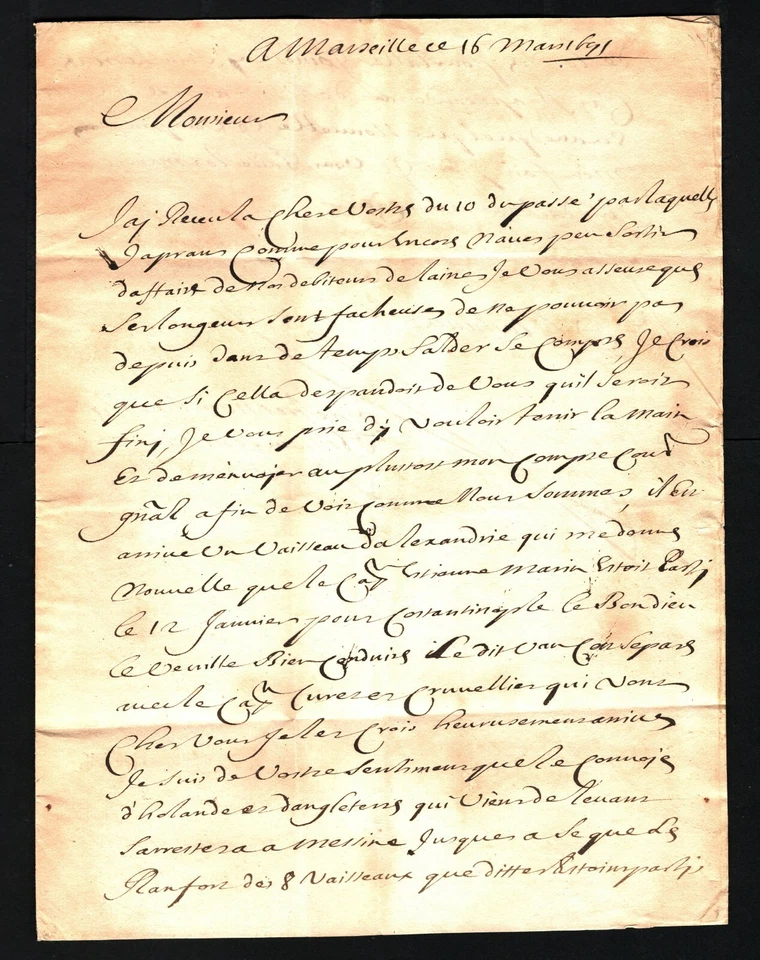 A Marseille ce 16 Mars 1691
Monsieur
J'aj Receu la Chere Vostre du 10 du passé par laquelle
J'aprans Comme pour Encore N'aves peu Sortir
d'affaire de Nos debiteurs de laines Je Vous asseure que
Ses longeurs Sont facheuses de ne pouvoir pas
depuis dans de temps Salder Se Compte, Je Crois
que Si Cella despandoit de Vous qu'il seroit
finj, Je Vous prie d'y Vouloir tenir la Main
Et de m'envojer au plustost mon Compte Cour^t
gñal afin de Voir Comme Nous Sommes, il Est
arrivé Un Vaisseau d'alexandrie qui me donne
Nouvelle que le Cap^ne Estienne Marin Estoit Partj
le 12 Janvier pour Costantinople le Bon dieu
le Veuille Bien Conduire il Se dit Un Separe
avec le Cap^ne Curet et Cruvellier qui Vont
Cher Vous Je les Crois heurusement arrivés
Je suis de Vostre Sentiment que le Convoje
d'holande et d'angleterre qui Vient de levant
S'arrestera a Messine Jusques a Se que Le
Ranfort des 8 Vaisseaux que ditte Estoint partis